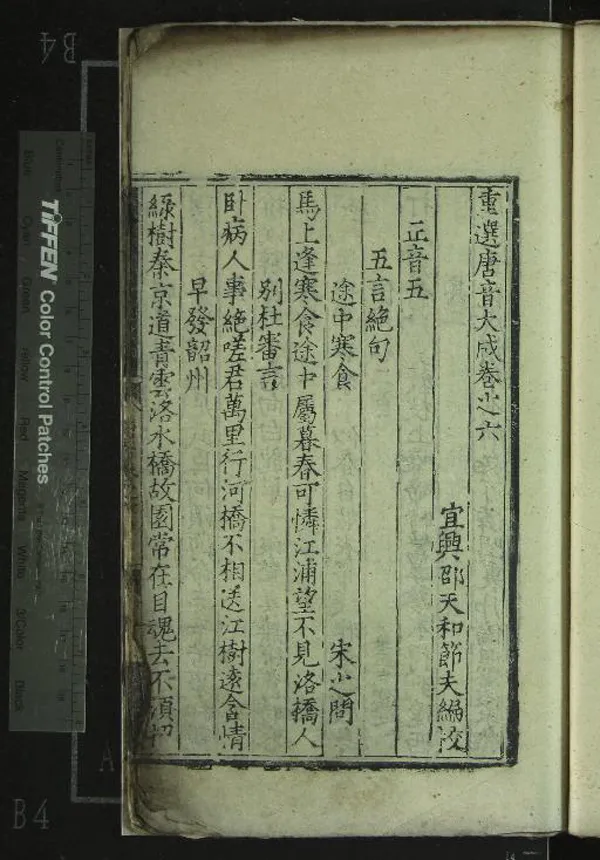 重選唐音大成卷之六
宜興邵天和節夫編次
正音五
五言絶句
途中寒食 宋之問
馬上逢寒食途中屬暮春可憐江浦望不見洛橋人
別杜審言
卧病人事絶嗟君萬里行河橋不相送江樹遠含情
早發韶州
綠樹秦京道青雲洛水橋故園常在目魂去不須招
TIFFEN Color Control Patches
Blue Cyan Green Yellow Red Magenta White 3/Color Black
B4
B4
A